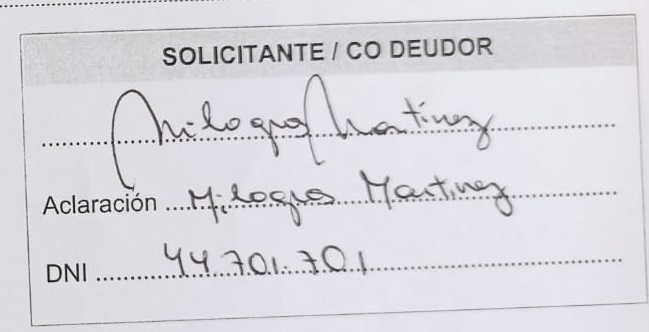 SOLICITANTE / CO DEUDOR
Milagros Martínez
Aclaración Milagros Martinez
DNI 44.701.701